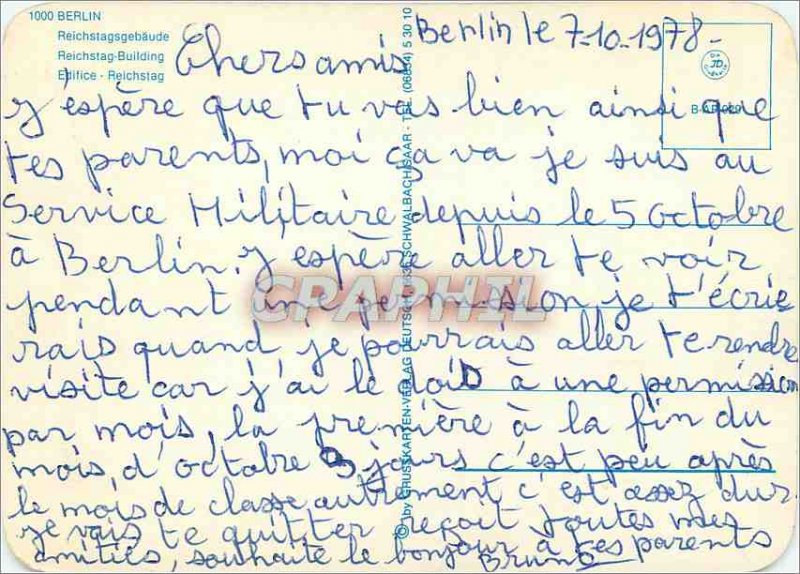 1000 BERLIN
Reichstagsgebäude
Reichstag-Building
Edifice - Reichstag
Berlin le 7-10-1978-
Chers amis
B-AP 029
j'espère que tu vas bien ainsi que
tes parents, moi ça va je suis au
Service Militaire depuis le 5 octobre
à Berlin. J'espère aller te voir
pendant une permission je t'écrie
rais quand je pourrais aller te rendre
visite car j'ai le doiD à une permission
par mois, la première à la fin du
mois, d'octobre 3 jours c'est peu après
le mois de classe autrement c'est assez dur
je vais te quitter reçoit toutes mes
amitiés, souhaite le bonjour à tes parents
Bruno
© by KRUSSKARTEN-VERLAG DEUTSCH SCHWALBACH/SAAR - TEL. (06834) 5 30 10
CPAPHIL